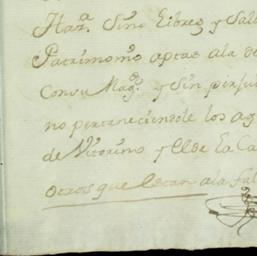 Haz.ª Sino Libres y Sal
Patrimom.º aptas a la de
Con su Mag.ᵈ y Sin perjui
no perteneciendole los ag
de Vitorino y el de la Ca
otros que estan a la fal